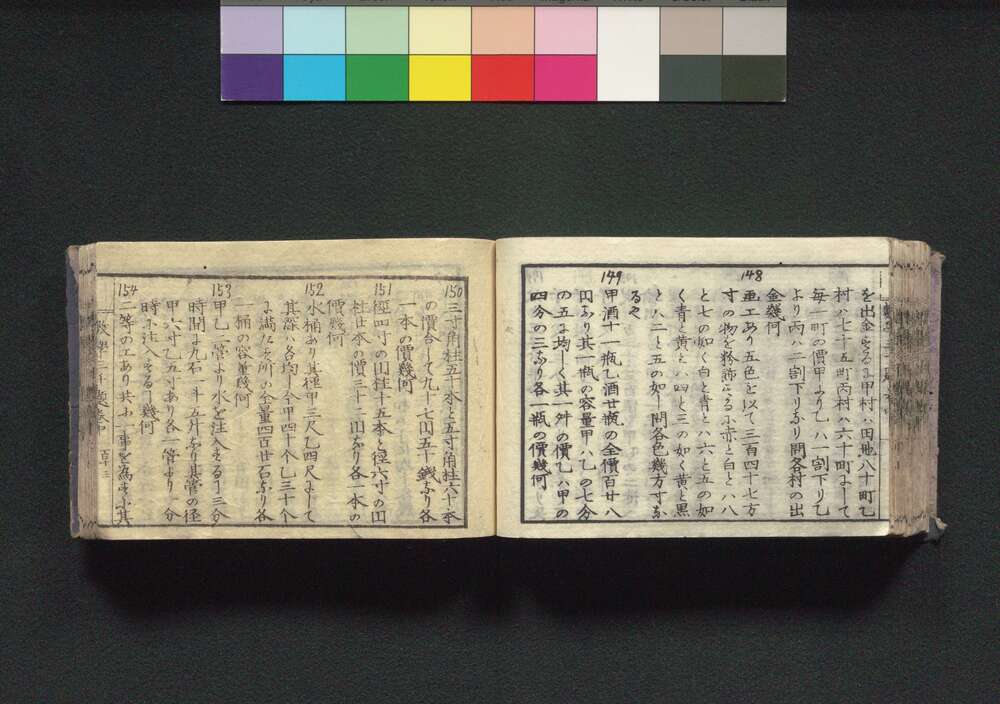 を出金するに甲村ハ田地八十町乙
村ハ七十五町丙村ハ六十町にして
毎一町の價甲より乙ハ一割下り乙
より丙ハ二割下りなり問各村の出
金幾何
148
画工あり五色を以て三百四十七方
寸の物を粉飾するに赤と白とハ八
と七の如く白と青とハ六と五の如
く青と黄とハ四と三の如く黄と黒
とハ二と五の如し問各色幾方寸な
るや
149
甲酒十一瓶乙酒廿瓶の全價百廿八
円なり其一瓶の容量甲ハ乙の七分
の五に均しく其一舛の價乙ハ甲の
四分の三なり各一瓶の價幾何
150
三寸角柱五十本と五寸角柱六十本
の價合して九十七円五十錢なり各
一本の價幾何
151
徑四寸の円柱十五本と徑六寸の円
柱廿本の價三十二円なり各一本の
價幾何
152
水桶あり其徑甲三尺乙四尺にして
其深ハ各均し今甲四十个乙三十个
に満たす所の全量四百廿石なり各
一桶の容量幾何
153
甲乙二管より水を注入する十三分
時間に九石二斗五升なり其管の徑
甲六寸乙五寸あり各一管より一分
時に注入する幾何
154
二等の工あり共に一事を為すに其
數學三千題卷中
百十三